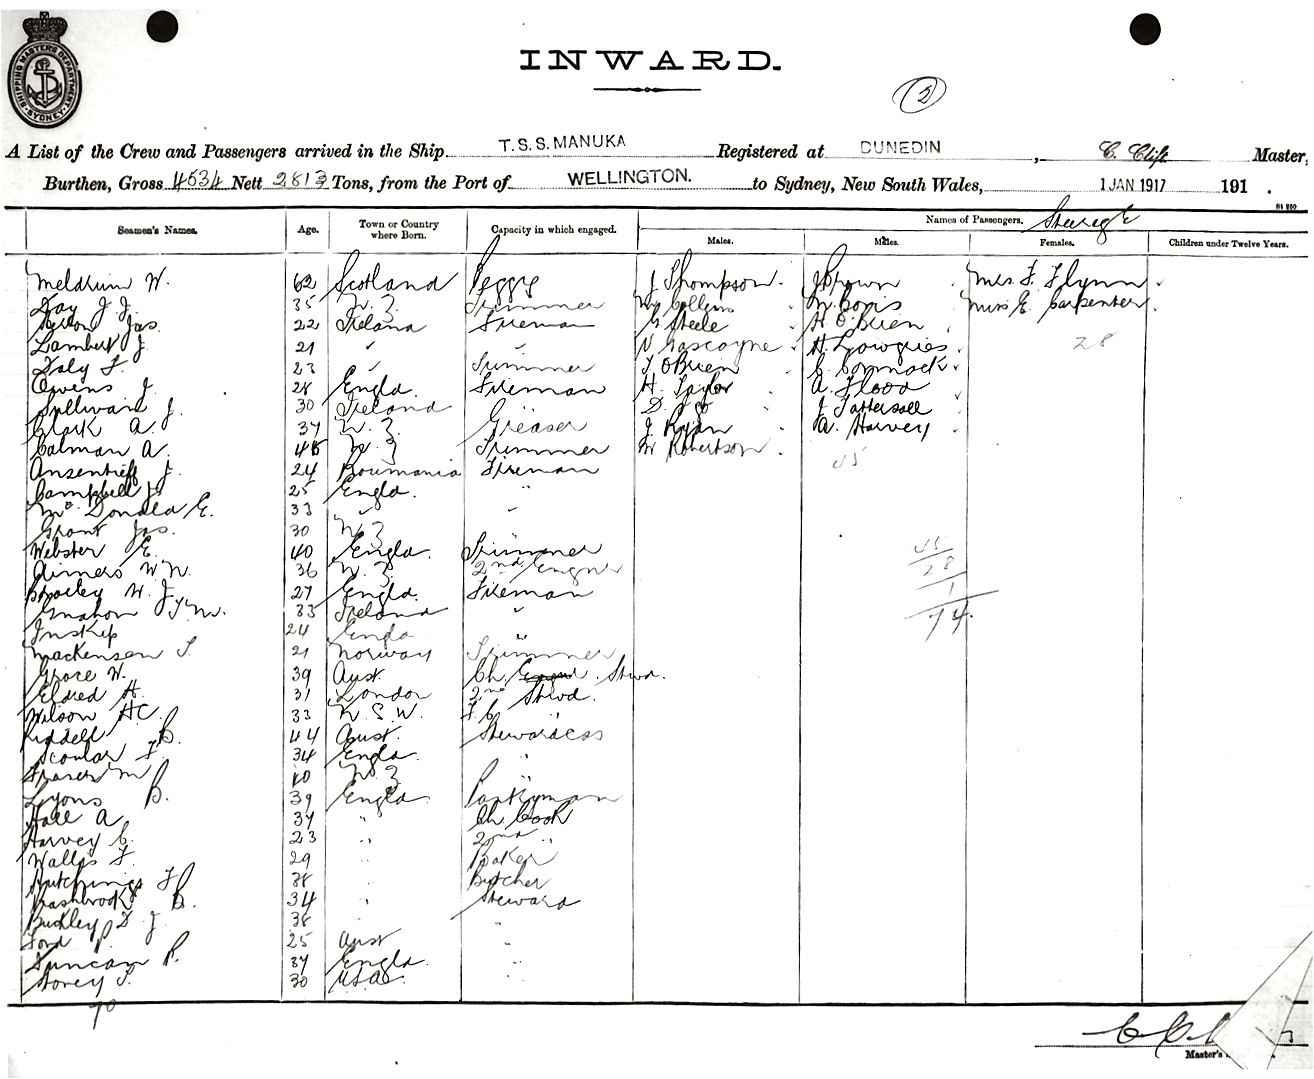 SHIPPING MASTER'S DEPARTMENT SYDNEY
INWARD.
2
A List of the Crew and Passengers arrived in the Ship T.S.S. MANUKA Registered at DUNEDIN, C. Clift Master,
Burthen, Gross 4534 Nett 2813 Tons, from the Port of WELLINGTON. to Sydney, New South Wales, 1 JAN 1917 191 .
Names of Passengers. Steerage
Seamen's Names. Age. Town or Country where Born. Capacity in which engaged. Males. Males. Females. Children under Twelve Years.
Meldrum W. 62 Scotland Peggy J Thompson. J Brown Mrs F. Flynn
Day J J. 35 N. Z Trimmer Wm Collins Miss E. Carpenter
Jas. 22 Ireland Fireman G Steele H O'Brien
Lambert J. 21 " " N Gascoyne H Lowgries 28
Daly F. 23 " Trimmer T. O'Brien C Cormack
Owens J. 28 Engld. Fireman H. Taylor A. Flood
Sullivan J. 30 Ireland D. J Tattersall
Clark A. 37 N. Z. Greaser J. Ryan A. Harvey
Calman A. 45 N. Z Trimmer W Robertson 45
J. 24 Roumania Fireman
Campbell J. 25 Engld. "
Mc Donald E. 33 " "
Grant Jas. 30 N Z
Webster E. 40 Engld. Trimmer 45
W. N. 36 N. Z. 2nd Engnr 28
W. J. 27 Engld. Fireman 1
33 Ireland " 74
Inskip 24 Engld "
Mackensen S. 21 Norway Trimmer
Grace W. 39 Aust. Ch. Stwd.
Eldred H. 31 London 2nd Stwd.
Wilson H C. 33 N. S. W. F. C. "
Riddell B. 44 Aust. Stewardess
Scoular F. 34 Engld. "
Fraser M 40 N. Z "
Lyons B. 39 Engld. Pantryman
Hall A. 37 " Ch Cook
Harvey C. 23 " 2nd "
Wallis F. 29 " Baker
Hutchings F 38 " Butcher
Brashbrook B. 34 " Steward
Buckley D J 38 " "
Ford P. 25 Aust "
Duncan R. 37 Engld. "
Storey S. 30 U.S.A "
70
Master's